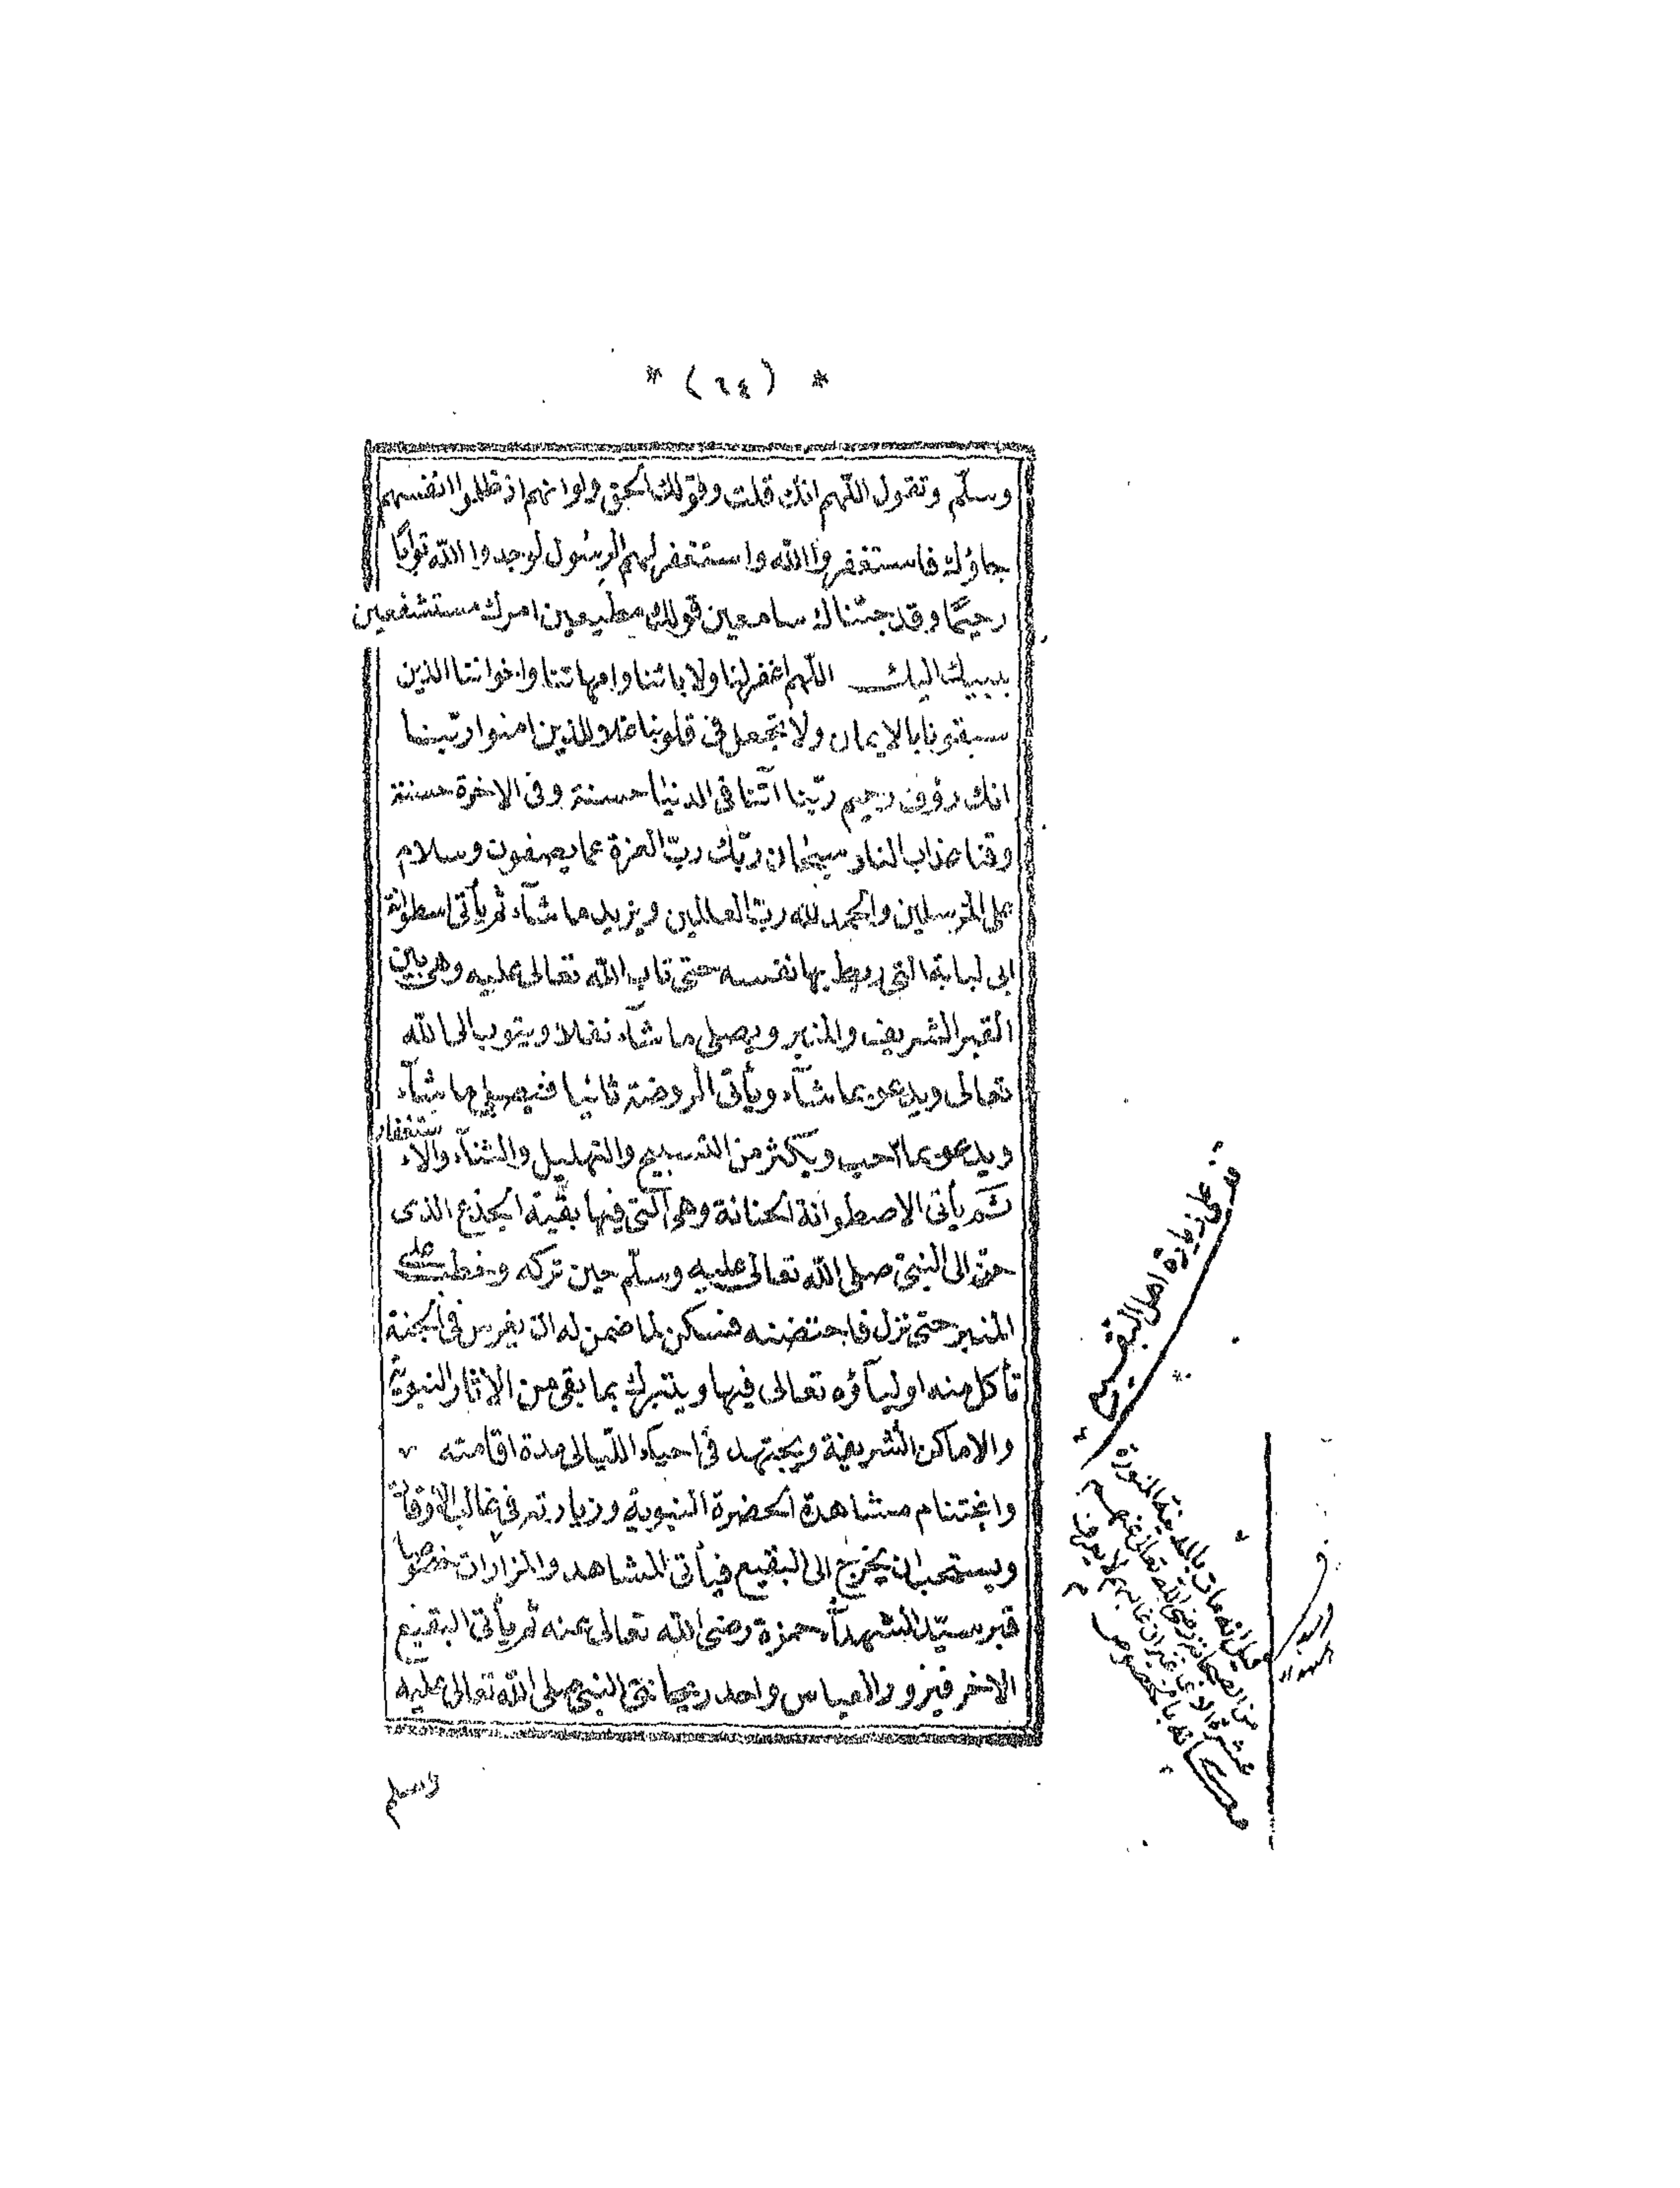 * (٦٤) *
وسلّم وتقول اللّهم انك قلت وقولك الحق ولوا نهم اذ ظلموا انفسهم
جاؤك فاستغفروا الله واستغفر لهم الرسول لوجدوا الله توابًا
رحيمًا وقد جئناك سامعين قولك مطيعين امرك مستشفعين
بنبيك اليك اللّهم اغفر لنا ولابائنا وامهاتنا واخواننا الذين
سبقونا بالايمان ولا تجعل فى قلوبنا غلا للذين امنوا ربّنا
انك رؤف رحيم ربّنا آتنا فى الدنيا حسنة وفى الاخرة حسنة
وقنا عذاب النار سبحان ربّك ربّ العزة عما يصفون وسلام
على المرسلين والحمد لله ربّ العالمين ويزيد ما شآء ثم يأتى اسطوانة
ابى لبابة التى ربط بها نفسه حتى تاب الله تعالى عليه وهى بين
القبر الشريف والمنبر ويصلى ما شآء نفلا ويتوب الى الله
تعالى ويدعو بما شآء ويأتى الروضة ثانيا فيصلى ما شآء
ويدعو بما احب ويكثر من التسبيح والتهليل والثنآء والاستغفار
ثمّ يأتى الاصطوانة الحنانة وهى آلتى فيها بقية الجذع الذى
حنّ الى النبىّ صلى الله تعالى عليه وسلّم حين تركه وخطب على
المنبر حتى نزل فاحتضنه فسكن لما ضمن له ان يغرس فى الجنة
تأكل منه اوليآؤه تعالى فيها ويتبرك بما بقى من الاثار النبوية
والاماكن الشريفة ويجتهد فى احيآء اللّيالى مدة اقامته
واغتنام مشاهدة الحضرة النبوية وزيارته فى غالب الاوقات
ويستحب ان يخرج الى البقيع فيأتى المشاهد والمزارات خصوصا
قبر سيّد الشهدآء حمزة رضى الله تعالى عنه ثم يأتى البقيع
الاخر فيزور العباس واحد ريحانتى النبى صلى الله تعالى عليه
وسلم
على زيارة اهل البقيع
قيل انه مات بالمدينة المنورة
من الصحابة رضى الله تعالى عنهم
عشرة الاف غير ان غالبهم لا يعرف
مكانه بالخصوص